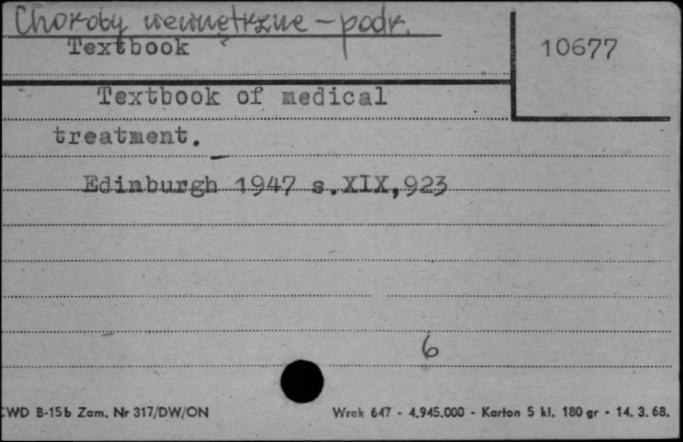 Choroby wewnętrzne - podr.
Textbook
10677
Textbook of medical
treatment.
Edinburgh 1947 s.XIX,923
6
CWD B-15b Zam. Nr 317/DW/ON
Wrok 647 - 4.945.000 - Karton 5 kl. 180 gr - 14. 3. 68.